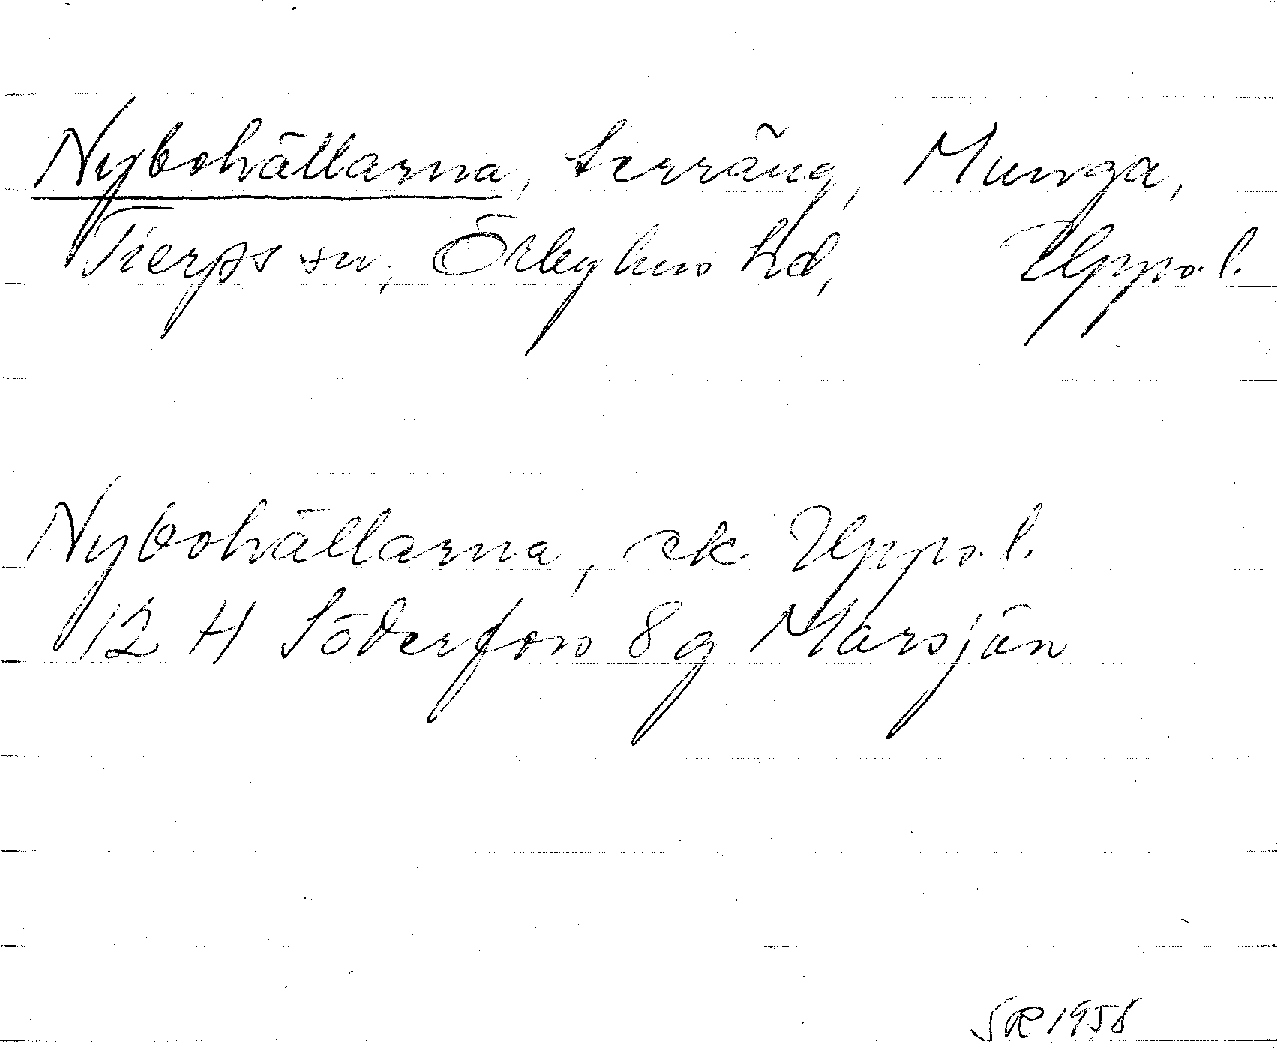 Nybohällarna, terräng, Munga,
Tierps sn, Örbyhus hd, Upps. l.
Nybohällarna, ek. Upps. l.
12 H Söderfors 8 g Marsjön
SR 1958